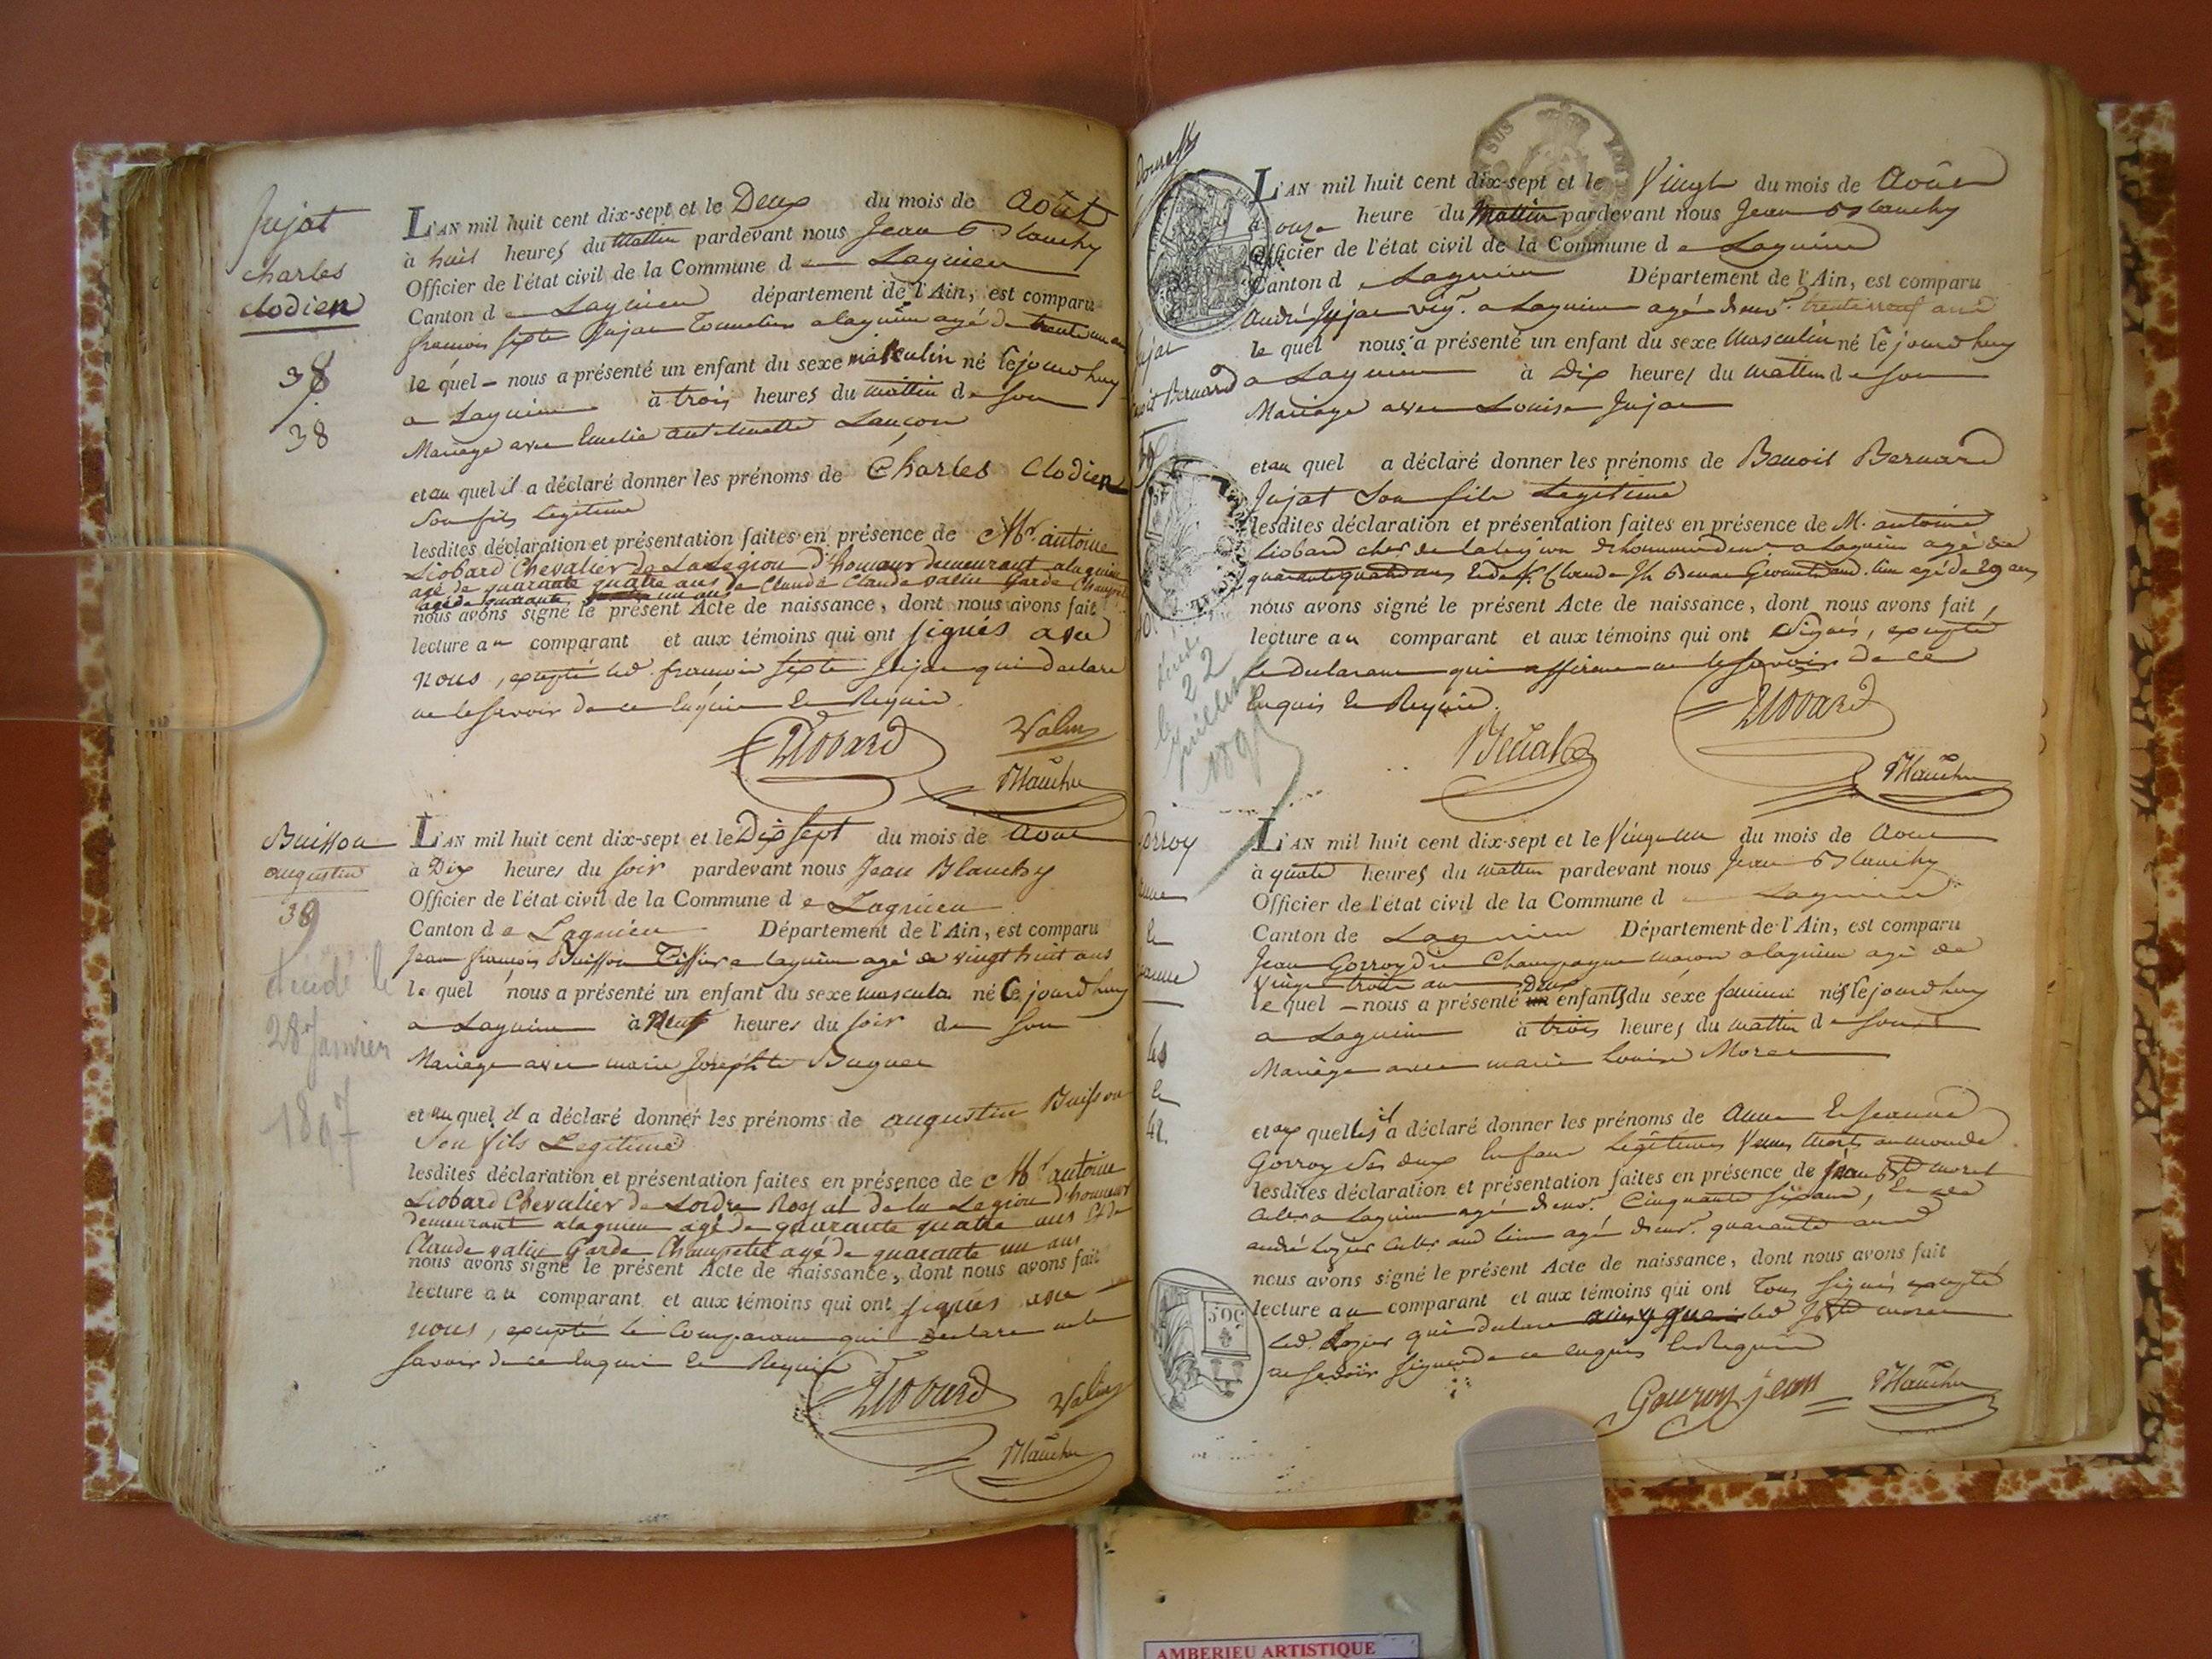 Jujat
charles
clodien
38
38
L'AN mil huit cent dix-sept et le Deux du mois de Août
à huit heures du Mattin pardevant nous Jean Blanchy
Officier de l'état civil de la Commune de Lagnieu
Canton de Lagnieu département de l'Ain, est comparu
françois sixte Jujat Tonnelier a lagnieu agé de trente un ans
le quel nous a présenté un enfant du sexe masculin né le jourdhuy
a Lagnieu à trois heures du mattin de son
Mariage avec Emelie antoinette Lançon
et au quel il a déclaré donner les prénoms de Charles Clodien
son fils Legitime
lesdites déclaration et présentation faites en présence de Mr. antoine
Liobard Chevalier de La Légion d'honneur demeurant a laguieu
agé de quarante quatre ans Claude valin Garde Champetre
agé de quarante un ans
nous avons signé le présent Acte de naissance, dont nous avons fait
lecture au comparant et aux témoins qui ont signés avec
nous, excepté led. françois sixte Jujat qui declare
ne le savoir de ce Enquis Et Requis
Liobard
Valin
Blanchy
Buisson
augustin
39
décédé le
28 Janvier
1897
L'AN mil huit cent dix-sept et le Dix sept du mois de Aout
à Dix heures du soir pardevant nous Jean Blanchy
Officier de l'état civil de la Commune de Lagnieu
Canton de Lagnieu Département de l'Ain, est comparu
Jean françois Buisson Tissier a lagnieu agé de vingt huit ans
le quel nous a présenté un enfant du sexe masculin né Ce jourdhuy
a Lagnieu à Neuf heures du soir de son
Mariage avec marie Josephte Buguet
et au quel il a déclaré donner les prénoms de augustin Buisson
Son fils Legitime
lesdites déclaration et présentation faites en présence de Mr antoine
Liobard Chevalier de Lordre Royal de la Legion d'honneur
demeurant a lagnieu agé de quarante quatre ans Et de
Claude valin Garde Champetre agé de quarante un ans
nous avons signé le présent Acte de naissance, dont nous avons fait
lecture au comparant et aux témoins qui ont signés avec
nous, excepté le Comparant qui declare ne le
savoir de ce Enquis Et Requis
Liobard
Valin
Blanchy
L'AN mil huit cent dix-sept et le Vingt du mois de Août
à onze heure du Mattin pardevant nous Jean Blanchy
Officier de l'état civil de la Commune de Lagnieu
Canton de Lagnieu Département de l'Ain, est comparu
André Jujat vig. a Lagnieu agé denv. trente neuf ans
le quel nous a présenté un enfant du sexe Masculin né le jourdhuy
a Lagnieu à Dix heures du mattin de son
Mariage avec Louise Jujat
et au quel a déclaré donner les prénoms de Benoit Bernard
Jujat Son fils Legitime
lesdites déclaration et présentation faites en présence de M. antoine
Liobard cher de la legion dhonneur a Lagnieu agé de
quarante quatre ans Claude agé de 29 ans
nous avons signé le présent Acte de naissance, dont nous avons fait
lecture au comparant et aux témoins qui ont signés, excepté
le declarant qui affirme ne le savoir de ce
Enquis Et Requis.
Liobard
Blanchy
Jujat
Benoit Bernard
22
juillet
L'AN mil huit cent dix-sept et le Vingt un du mois de Aout
à quatre heures du mattin pardevant nous Jean Blanchy
Officier de l'état civil de la Commune d Lagnieu
Canton de Lagnieu Département de l'Ain, est comparu
Jean Gorroy dit Champagne macon a lagnieu agé de
vingt trois ans
le quel nous a présenté un Deux enfants du sexe feminin nés le jourdhuy
a Lagnieu à trois heures du mattin de son
Mariage avec marie Louise Morel
et aux quelles il a déclaré donner les prénoms de Anne Et Jeanne
Gorroy Ses deux Enfans Legitimes Venus Morts au monde
lesdites déclaration et présentation faites en présence de Jean Bte morel
a Lagnieu agé denv. Cinquante six ans, Et de
andré Logier aud lieu agé denv. quarante ans
nous avons signé le présent Acte de naissance, dont nous avons fait
lecture au comparant et aux témoins qui ont Tous signés excepté
led. Logier qui declare ainsy que led Jn Bte morel
ne savoir signer de ce enquis Et Requis
Gouroy jean
Blanchy
Gorroy
40
41.
50C
AMBERIEU ARTISTIQUE